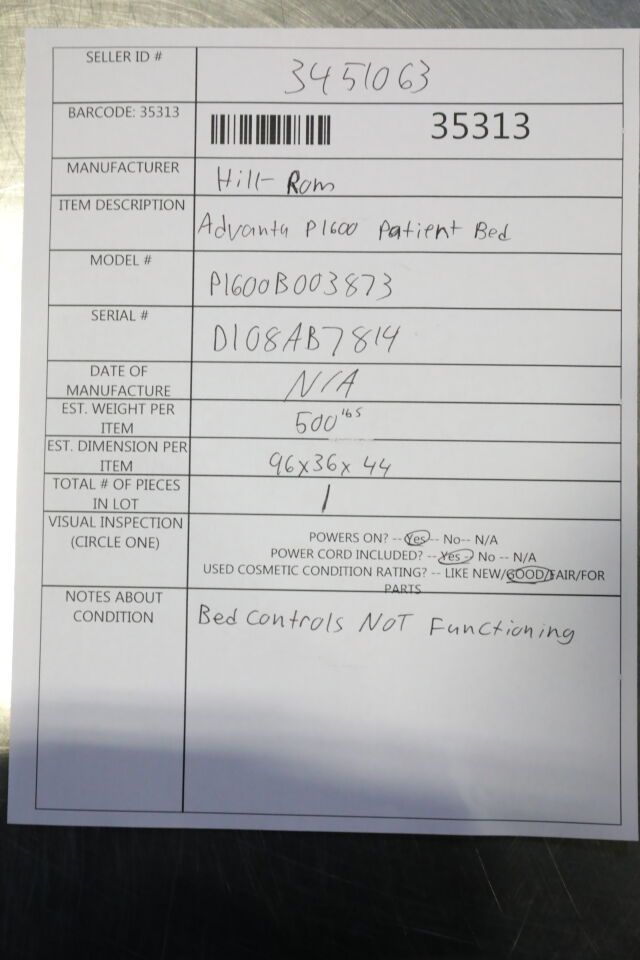 SELLER ID #
3451063
BARCODE: 35313
35313
MANUFACTURER
Hill-Rom
ITEM DESCRIPTION
Advanta P1600 Patient Bed
MODEL #
P1600B003873
SERIAL #
D108AB7814
DATE OF
MANUFACTURE
N/A
EST. WEIGHT PER
ITEM
500 lbs
EST. DIMENSION PER
ITEM
96x36x44
TOTAL # OF PIECES
IN LOT
1
VISUAL INSPECTION
(CIRCLE ONE)
POWERS ON? -- Yes -- No-- N/A
POWER CORD INCLUDED? -- Yes - No -- N/A
USED COSMETIC CONDITION RATING? -- LIKE NEW/GOOD/FAIR/FOR
PARTS
NOTES ABOUT
CONDITION
Bed controls NOT Functioning